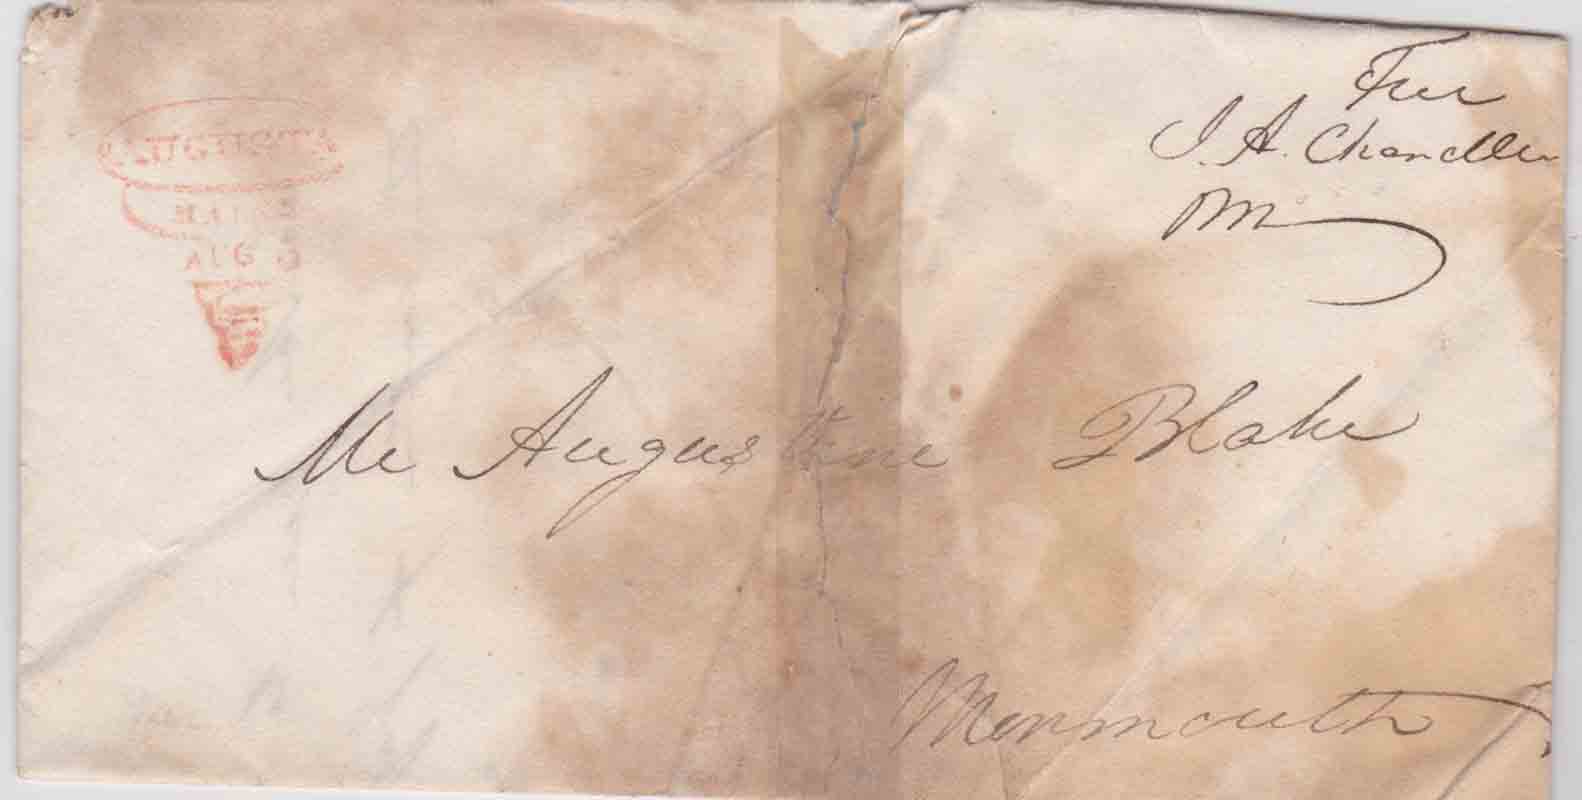 Free
J. A. Chandler
PM
AUGUSTA
MAINE
AUG
Mr Augustine Blake
Monmouth